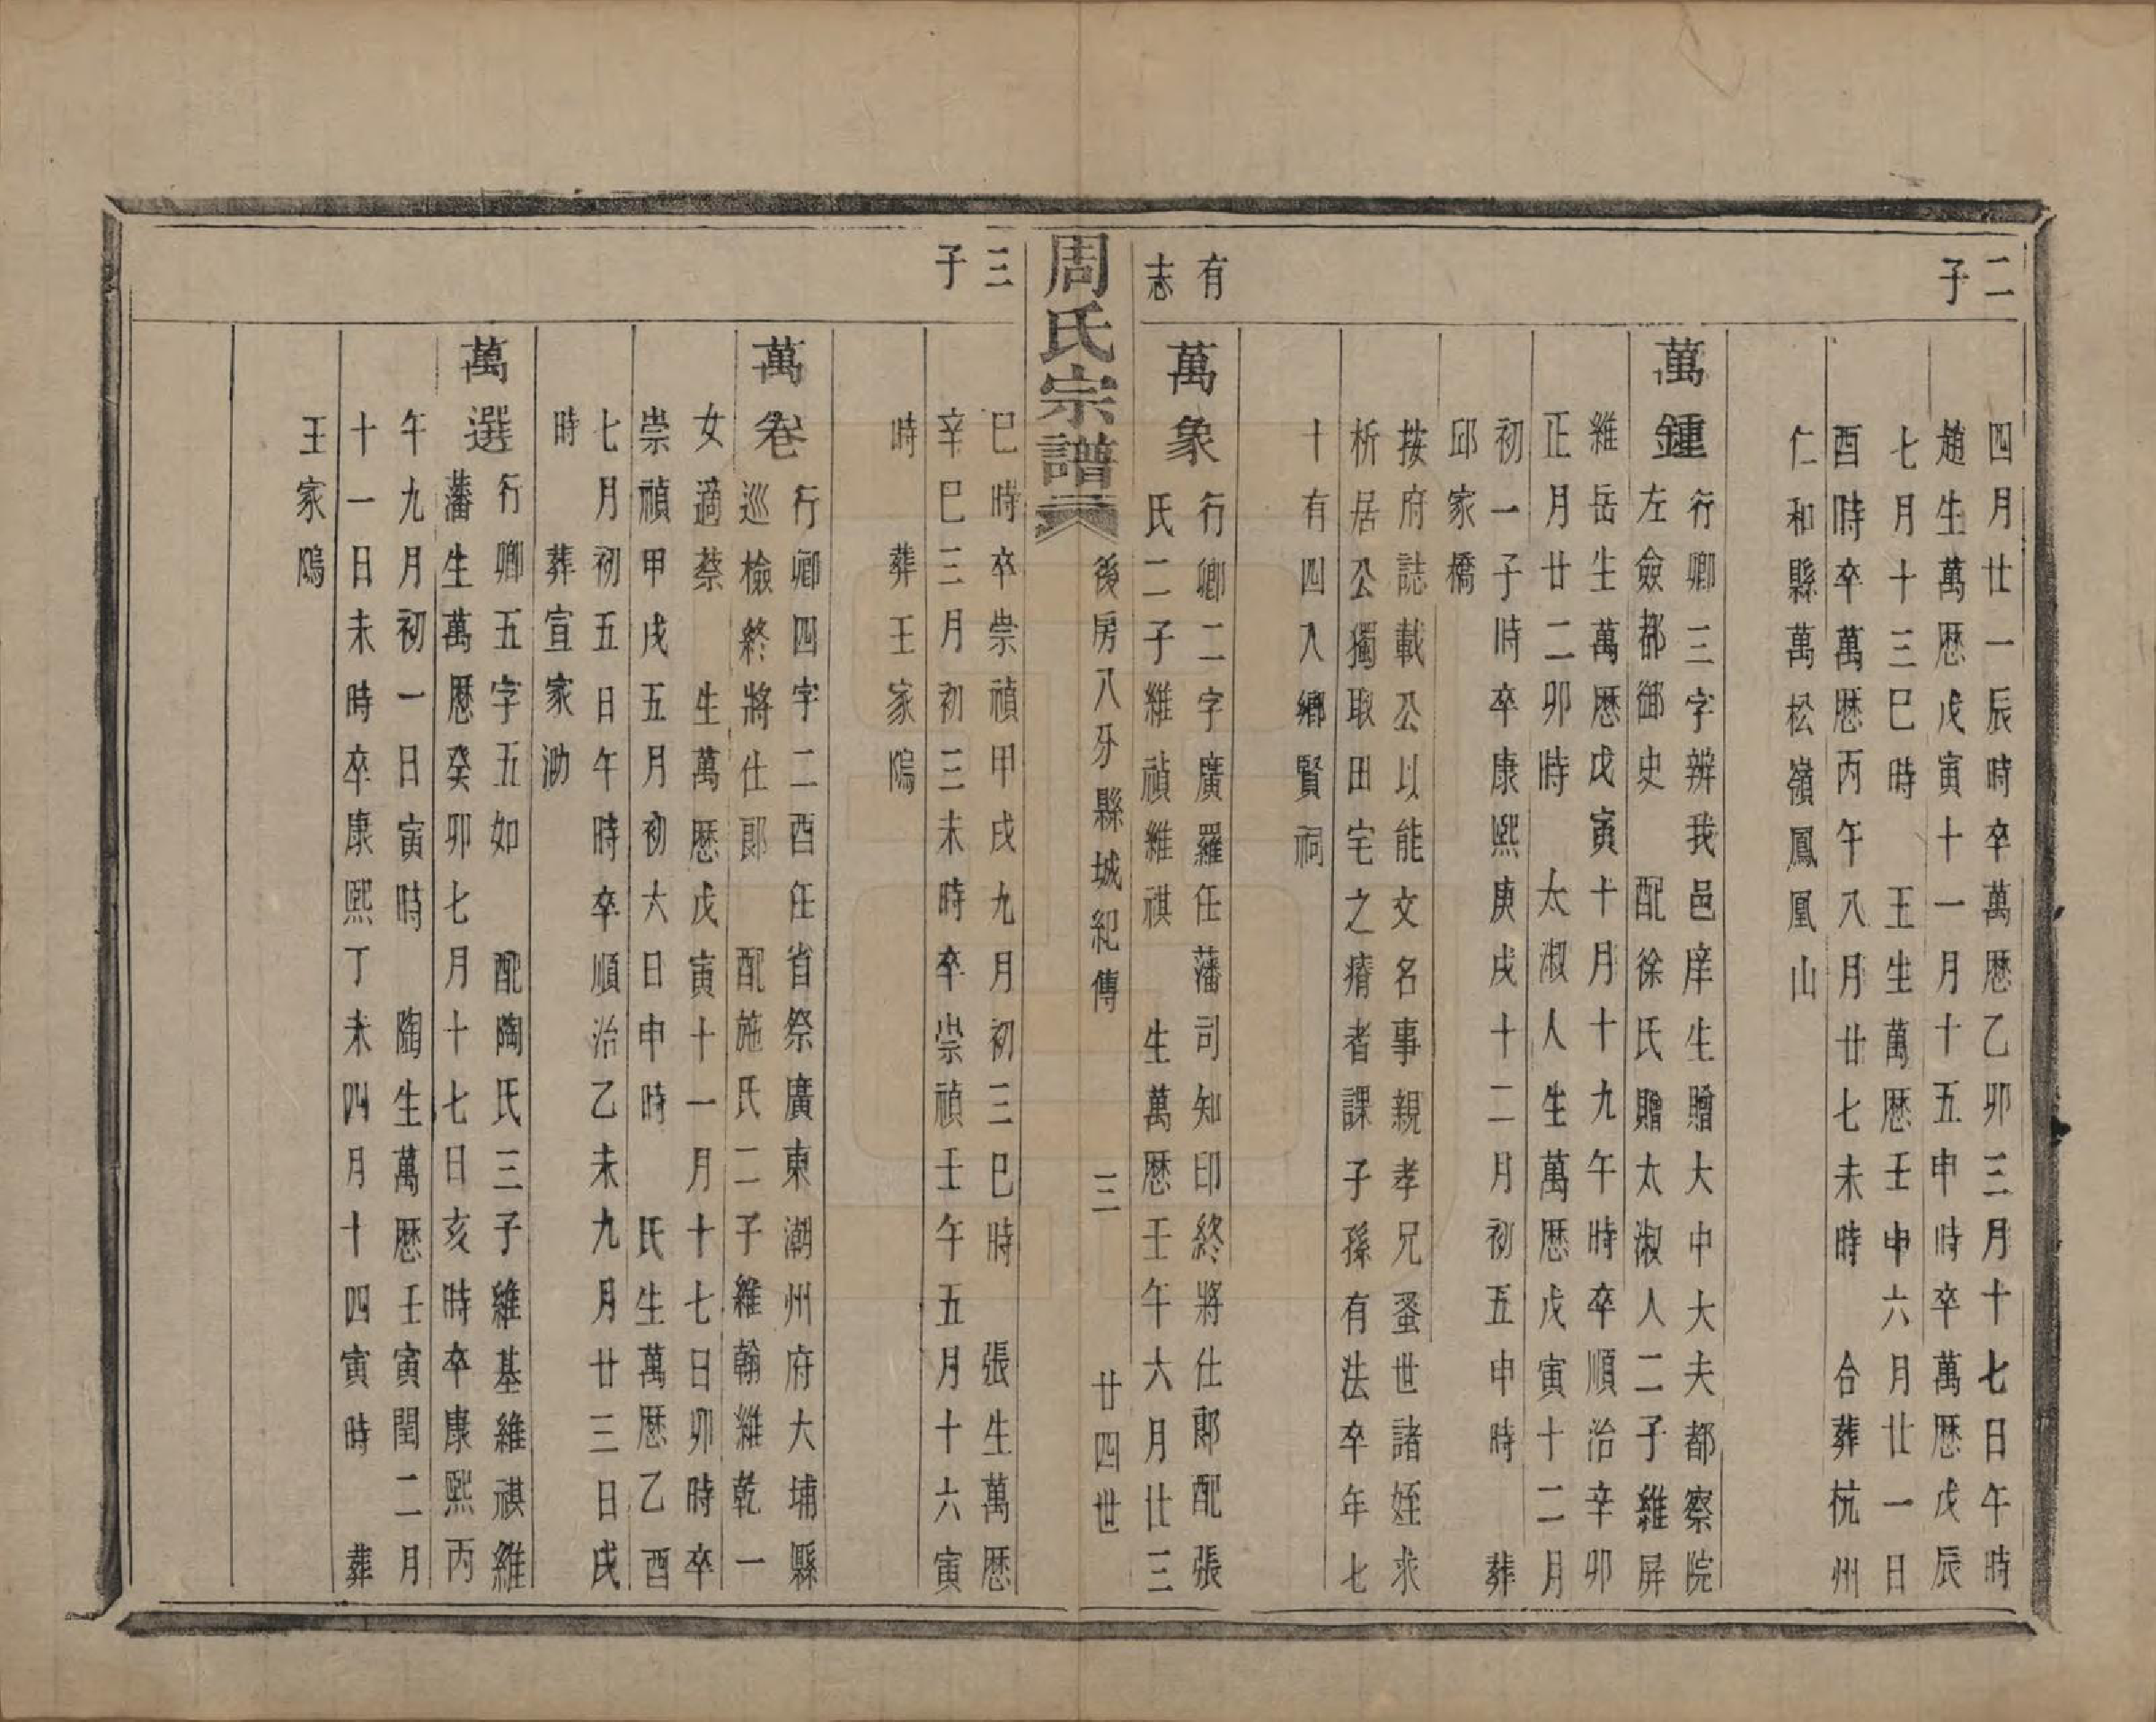 二
子
四月廿一辰時卒萬歷乙卯三月十七日午時
趙生萬歷戊寅十一月十五申時卒萬歷戊辰
七月十三巳時　王生萬歷壬申六月廿一日
酉時卒萬歷丙午八月廿七未時　合葬杭州
仁和縣萬松嶺鳳凰山
萬鍾
行卿三字辨我邑庠生贈大中大夫都察院
左僉都御史　配徐氏贈太淑人二子維屏
維岳生萬歷戊寅十月十九午時卒順治辛卯
正月廿二卯時　太淑人生萬歷戊寅十二月
初一子時卒康熙庚戌十二月初五申時　葬
邱家橋
按府誌載公以能文名事親孝兄蚤世諸姪求
析居公獨取田宅之瘠者課子孫有法卒年七
十有四入鄉賢祠
有
志
萬象
行卿二字廣羅任藩司知印終將仕郎配張
氏二子維禎維祺　生萬歷壬午六月廿三
周氏宗譜
後房八牙縣城紀傳　三　廿四世
三
子
巳時卒崇禎甲戌九月初三巳時　張生萬歷
辛巳三月初三未時卒崇禎壬午五月十六寅
時　葬王家隖
萬卷
行卿四字二酉任省祭廣東潮州府大埔縣
巡檢終將仕郎　配施氏二子維翰維乾一
女適蔡　生萬歷戊寅十一月十七日卯時卒
崇禎甲戌五月初六日申時　氏生萬歷乙酉
七月初五日午時卒順治乙未九月廿三日戌
時　葬宣家泐
萬選
行卿五字五如　配陶氏三子維基維祺維
藩生萬歷癸卯七月十七日亥時卒康熙丙
午九月初一日寅時　陶生萬歷壬寅閏二月
十一日未時卒康熙丁未四月十四寅時　葬
王家隖